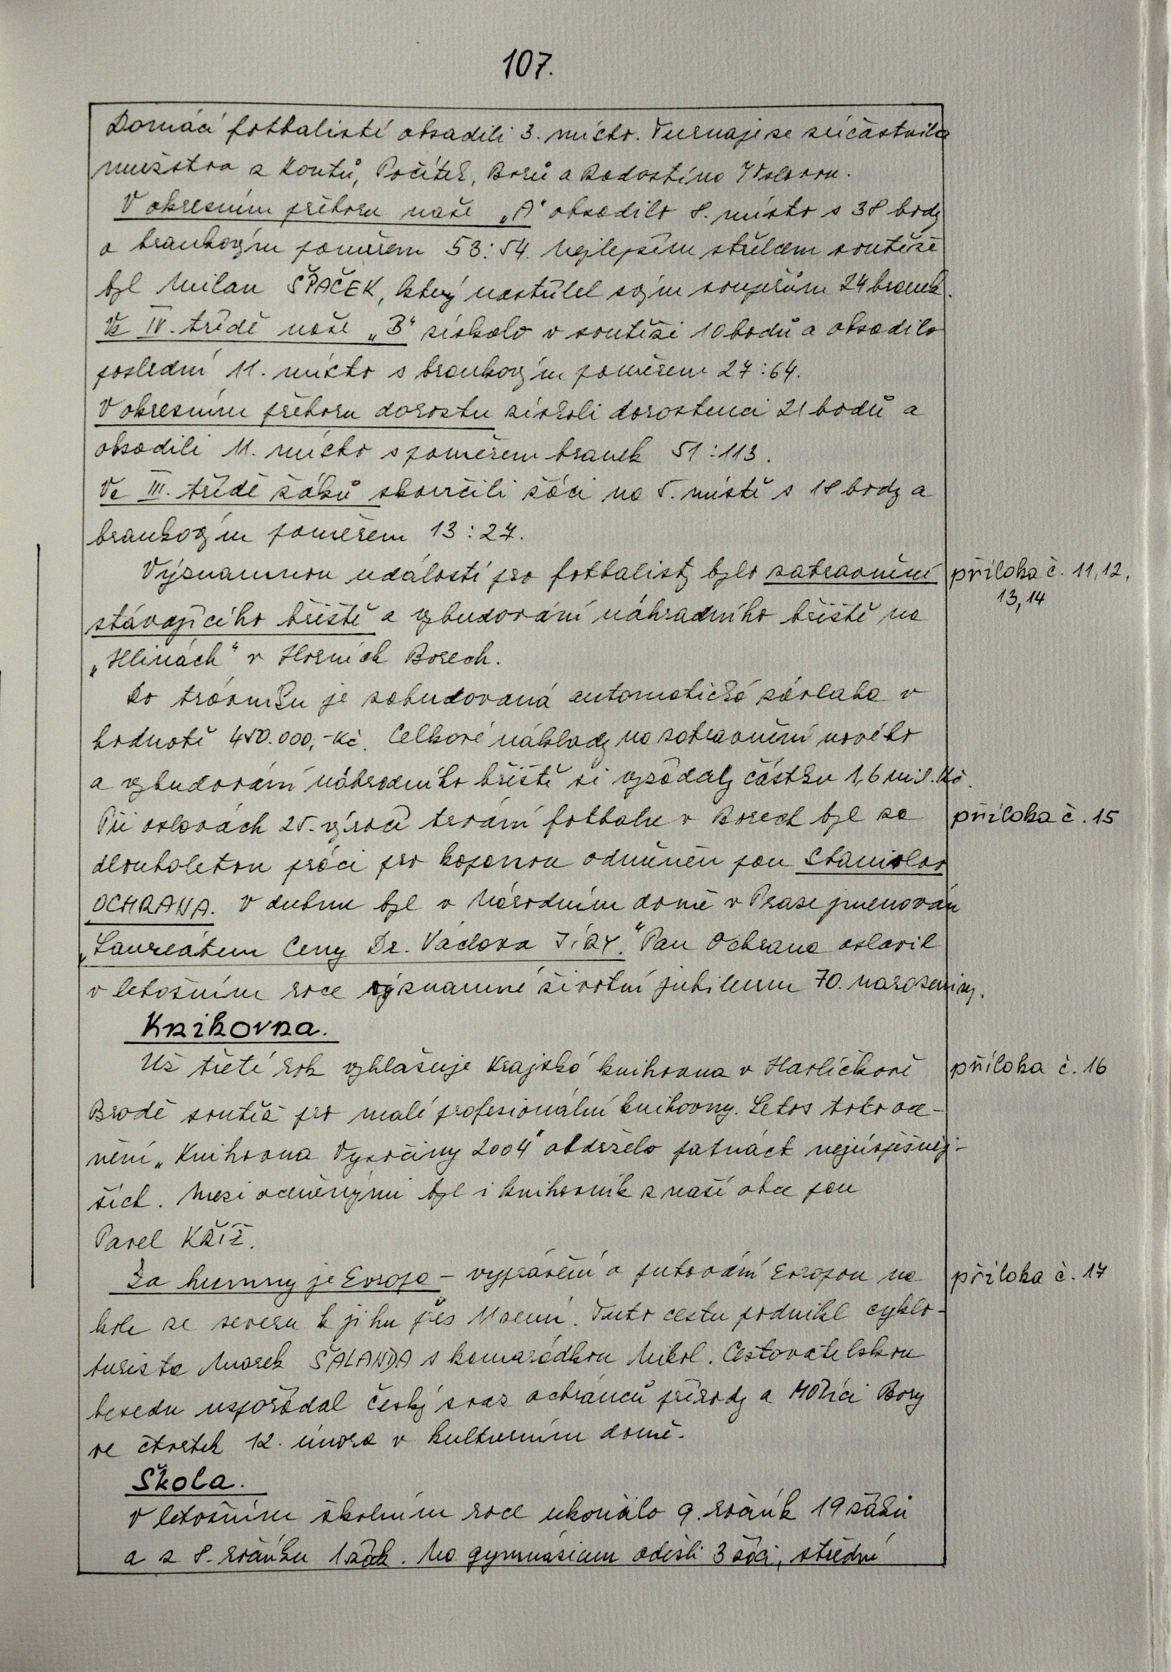 107.
Domácí fotbalisté obsadili 3. místo. Turnaje se zúčastnila
mužstva z Kontů, Počítek, Borů a Radostína
V okresním přeboru naše „A" obsadilo 8. místo s 38 body
a brankovým poměrem 53:54. Nejlepším střelcem soutěže
byl Milan ŠPAČEK, který nastřílel svým soupeřům 24 branek.
Ve IV. třídě naše „B" získalo v soutěži 10 bodů a obsadilo
poslední 11. místo s brankovým poměrem 27:64.
V okresním přeboru dorostu získali dorostenci 21 bodů a
obsadili 11. místo s poměrem branek 51:113.
Ve III. třídě žáků skončili žáci na 5. místě s 18 body a
brankovým poměrem 13:27.
Významnou událostí pro fotbalisty bylo zatravnění
příloha č. 11, 12,
13, 14
stávajícího hřiště a vybudování náhradního hřiště na
„Hlinách" v Horních Borech.
Do trávníku je zabudovaná automatická závlaha v
hodnotě 450.000,-Kč. Celkové náklady na zatravnění nového
a vybudování náhradního hřiště si vyžádaly částku 1,6 mil. Kč.
Při oslavách 25. výročí trvání fotbalu v Borech byl za
příloha č. 15
dlouholetou práci pro kopanou odměněn pan Stanislav
OCHRANA. V dubnu byl v Národním domě v Praze jmenován
„Laureátem Ceny Dr. Václava JÍRY." Pan Ochrana oslavil
v letošním roce významné životní jubileum 70. narozeniny.
Knihovna.
Už třetí rok vyhlašuje Krajská knihovna v Havlíčkově
příloha č. 16
Brodě soutěž pro malé profesionální knihovny. Letos toto oce-
nění „Knihovna Vysočiny 2004" obdrželo patnáct nejúspěšněj-
ších. Mezi oceněnými byl i knihovník z naší obce pan
Pavel KŘÍŽ.
Za humny je Evropa - vyprávění o putování Evropou na
příloha č. 17
kole ze severu k jihu přes Ukrainu. Tuto cestu podnikl cyklo-
turista Marek ŠALANDA s kamarádkou Nikol. Cestovatelskou
besedu uspořádal Český svaz ochránců přírody a Hořící Bory
ve čtvrtek 12. února v kulturním domě.
Škola.
V letošním školním roce ukončilo 9. ročník 19 žáků
a z 8. ročníku 1 žák. Na gymnasium odešli 3 žáci, střední